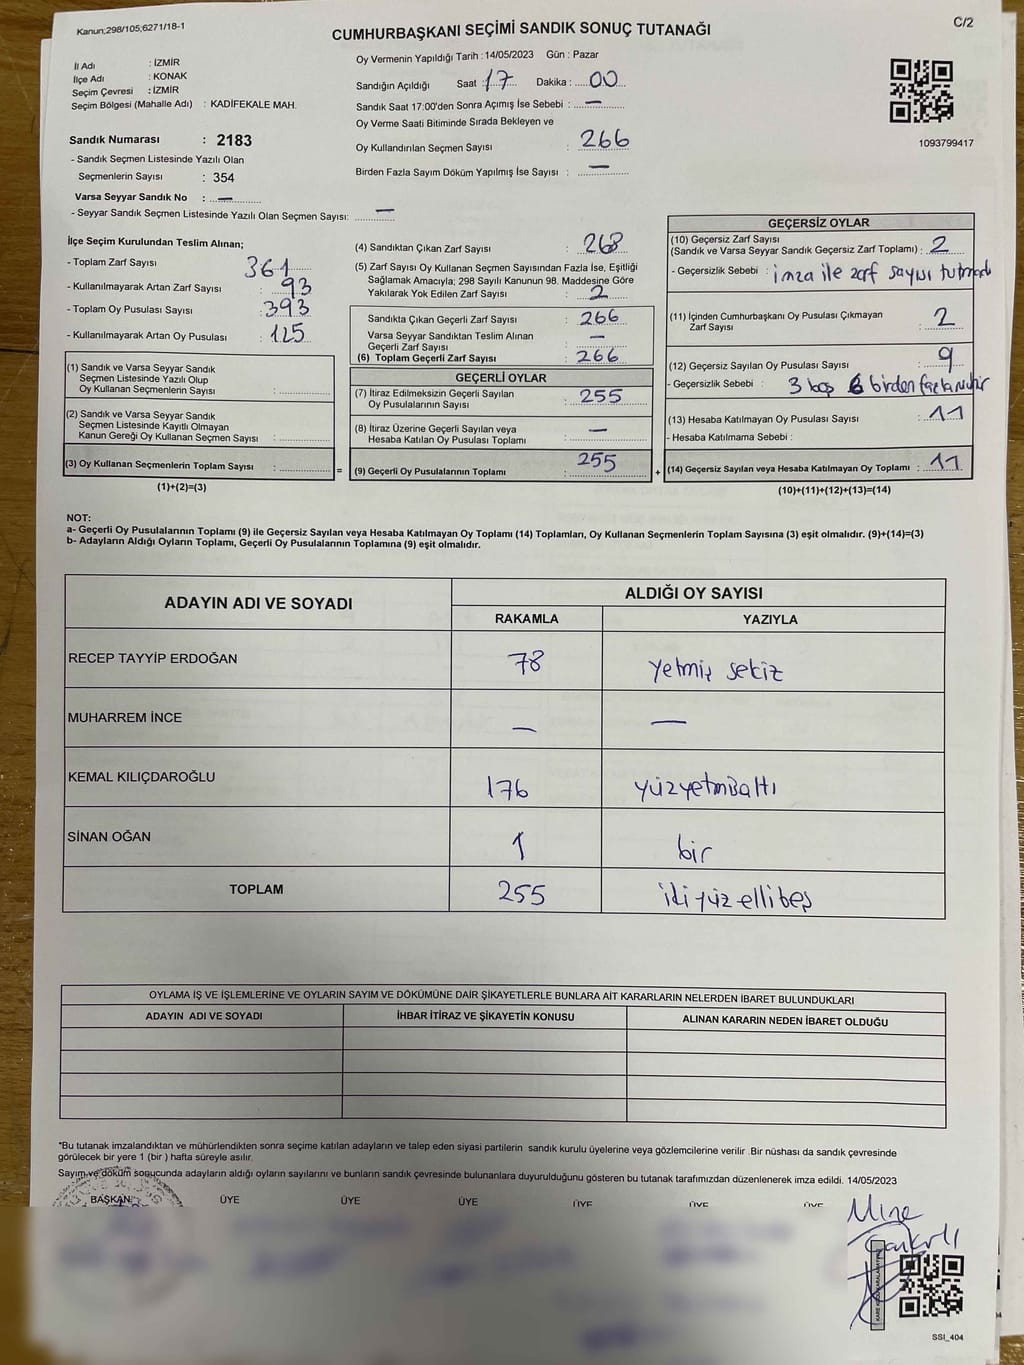 Kanun;298/105;6271/18-1
CUMHURBAŞKANI SEÇİMİ SANDIK SONUÇ TUTANAĞI
C/2
İl Adı : İZMİR
İlçe Adı : KONAK
Seçim Çevresi : İZMİR
Seçim Bölgesi (Mahalle Adı) : KADİFEKALE MAH.
Sandık Numarası : 2183
- Sandık Seçmen Listesinde Yazılı Olan
Seçmenlerin Sayısı : 354
Varsa Seyyar Sandık No : —
- Seyyar Sandık Seçmen Listesinde Yazılı Olan Seçmen Sayısı: —
Oy Vermenin Yapıldığı Tarih : 14/05/2023 Gün : Pazar
Sandığın Açıldığı Saat : 17 Dakika : 00
Sandık Saat 17:00'den Sonra Açımış İse Sebebi : —
Oy Verme Saati Bitiminde Sırada Bekleyen ve
Oy Kullandırılan Seçmen Sayısı : 266
Birden Fazla Sayım Döküm Yapılmış İse Sayısı : —
1093799417
İlçe Seçim Kurulundan Teslim Alınan;
- Toplam Zarf Sayısı 361
- Kullanılmayarak Artan Zarf Sayısı : 93
- Toplam Oy Pusulası Sayısı : 393
- Kullanılmayarak Artan Oy Pusulası : 125
(1) Sandık ve Varsa Seyyar Sandık
Seçmen Listesinde Yazılı Olup
Oy Kullanan Seçmenlerin Sayısı :
(2) Sandık ve Varsa Seyyar Sandık
Seçmen Listesinde Kayıtlı Olmayan
Kanun Gereği Oy Kullanan Seçmen Sayısı :
(3) Oy Kullanan Seçmenlerin Toplam Sayısı : =
(1)+(2)=(3)
(4) Sandıktan Çıkan Zarf Sayısı : 268
(5) Zarf Sayısı Oy Kullanan Seçmen Sayısından Fazla İse, Eşitliği
Sağlamak Amacıyla; 298 Sayılı Kanunun 98. Maddesine Göre
Yakılarak Yok Edilen Zarf Sayısı : 2
Sandıkta Çıkan Geçerli Zarf Sayısı : 266
Varsa Seyyar Sandıktan Teslim Alınan
Geçerli Zarf Sayısı : —
(6) Toplam Geçerli Zarf Sayısı : 266
GEÇERLİ OYLAR
(7) İtiraz Edilmeksizin Geçerli Sayılan
Oy Pusulalarının Sayısı : 255
(8) İtiraz Üzerine Geçerli Sayılan veya
Hesaba Katılan Oy Pusulası Toplamı : —
(9) Geçerli Oy Pusulalarının Toplamı : 255 +
GEÇERSİZ OYLAR
(10) Geçersiz Zarf Sayısı
(Sandık ve Varsa Seyyar Sandık Geçersiz Zarf Toplamı) : 2
- Geçersizlik Sebebi : imza ile zarf sayısı tutmadı
(11) İçinden Cumhurbaşkanı Oy Pusulası Çıkmayan
Zarf Sayısı : 2
(12) Geçersiz Sayılan Oy Pusulası Sayısı : 9
- Geçersizlik Sebebi : 3 boş 6 birden fazla mühür
(13) Hesaba Katılmayan Oy Pusulası Sayısı : 11
- Hesaba Katılmama Sebebi :
(14) Geçersiz Sayılan veya Hesaba Katılmayan Oy Toplamı : 11
(10)+(11)+(12)+(13)=(14)
NOT:
a- Geçerli Oy Pusulalarının Toplamı (9) ile Geçersiz Sayılan veya Hesaba Katılmayan Oy Toplamı (14) Toplamları, Oy Kullanan Seçmenlerin Toplam Sayısına (3) eşit olmalıdır. (9)+(14)=(3)
b- Adayların Aldığı Oyların Toplamı, Geçerli Oy Pusulalarının Toplamına (9) eşit olmalıdır.
ADAYIN ADI VE SOYADI
ALDIĞI OY SAYISI
RAKAMLA YAZIYLA
RECEP TAYYİP ERDOĞAN 78 yetmiş sekiz
MUHARREM İNCE — —
KEMAL KILIÇDAROĞLU 176 yüzyetmişaltı
SİNAN OĞAN 1 bir
TOPLAM 255 iki yüz elli beş
OYLAMA İŞ VE İŞLEMLERİNE VE OYLARIN SAYIM VE DÖKÜMÜNE DAİR ŞİKAYETLERLE BUNLARA AİT KARARLARIN NELERDEN İBARET BULUNDUKLARI
ADAYIN ADI VE SOYADI İHBAR İTİRAZ VE ŞİKAYETİN KONUSU ALINAN KARARIN NEDEN İBARET OLDUĞU
*Bu tutanak imzalandıktan ve mühürlendikten sonra seçime katılan adayların ve talep eden siyasi partilerin sandık kurulu üyelerine veya gözlemcilerine verilir .Bir nüshası da sandık çevresinde
görülecek bir yere 1 (bir ) hafta süreyle asılır.
Sayım ve döküm sonucunda adayların aldığı oyların sayılarını ve bunların sandık çevresinde bulunanlara duyurulduğunu gösteren bu tutanak tarafımızdan düzenlenerek imza edildi. 14/05/2023
BAŞKAN ÜYE ÜYE ÜYE ÜYE ÜYE ÜYE
Mine
SSI_404